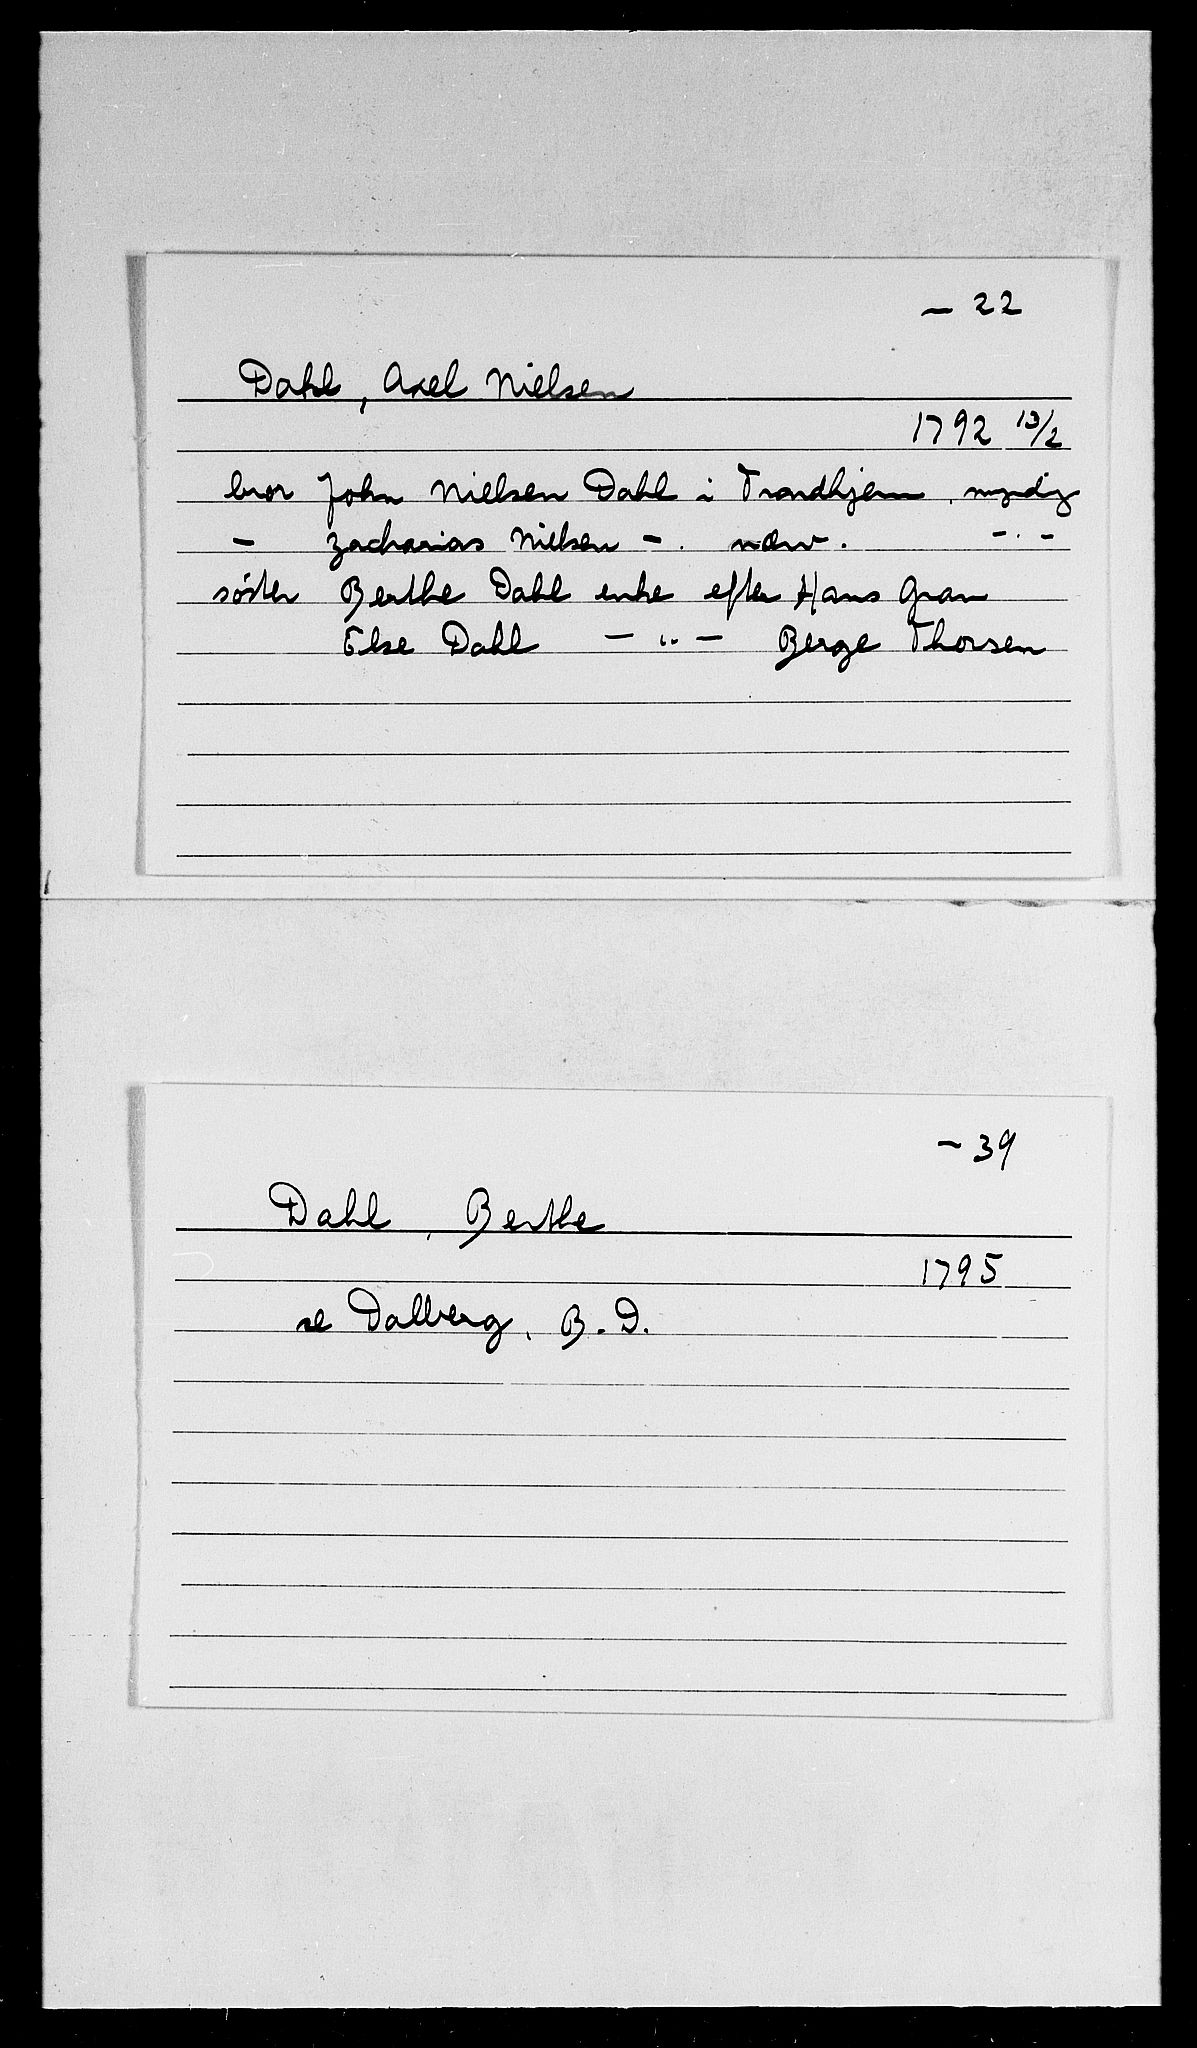 - 22
Dahl, Axel Nielsen
1792 13/2
bror John Nielsen Dahl i Trondhjem, myndig
- Zacharias Nielsen - . nærv. - . -
söster Berthe Dahl enke efter Hans Gran
Else Dahl - " - Berge Thorsen
- 39
Dahl, Berthe
1795
se Dalberg, B. D.